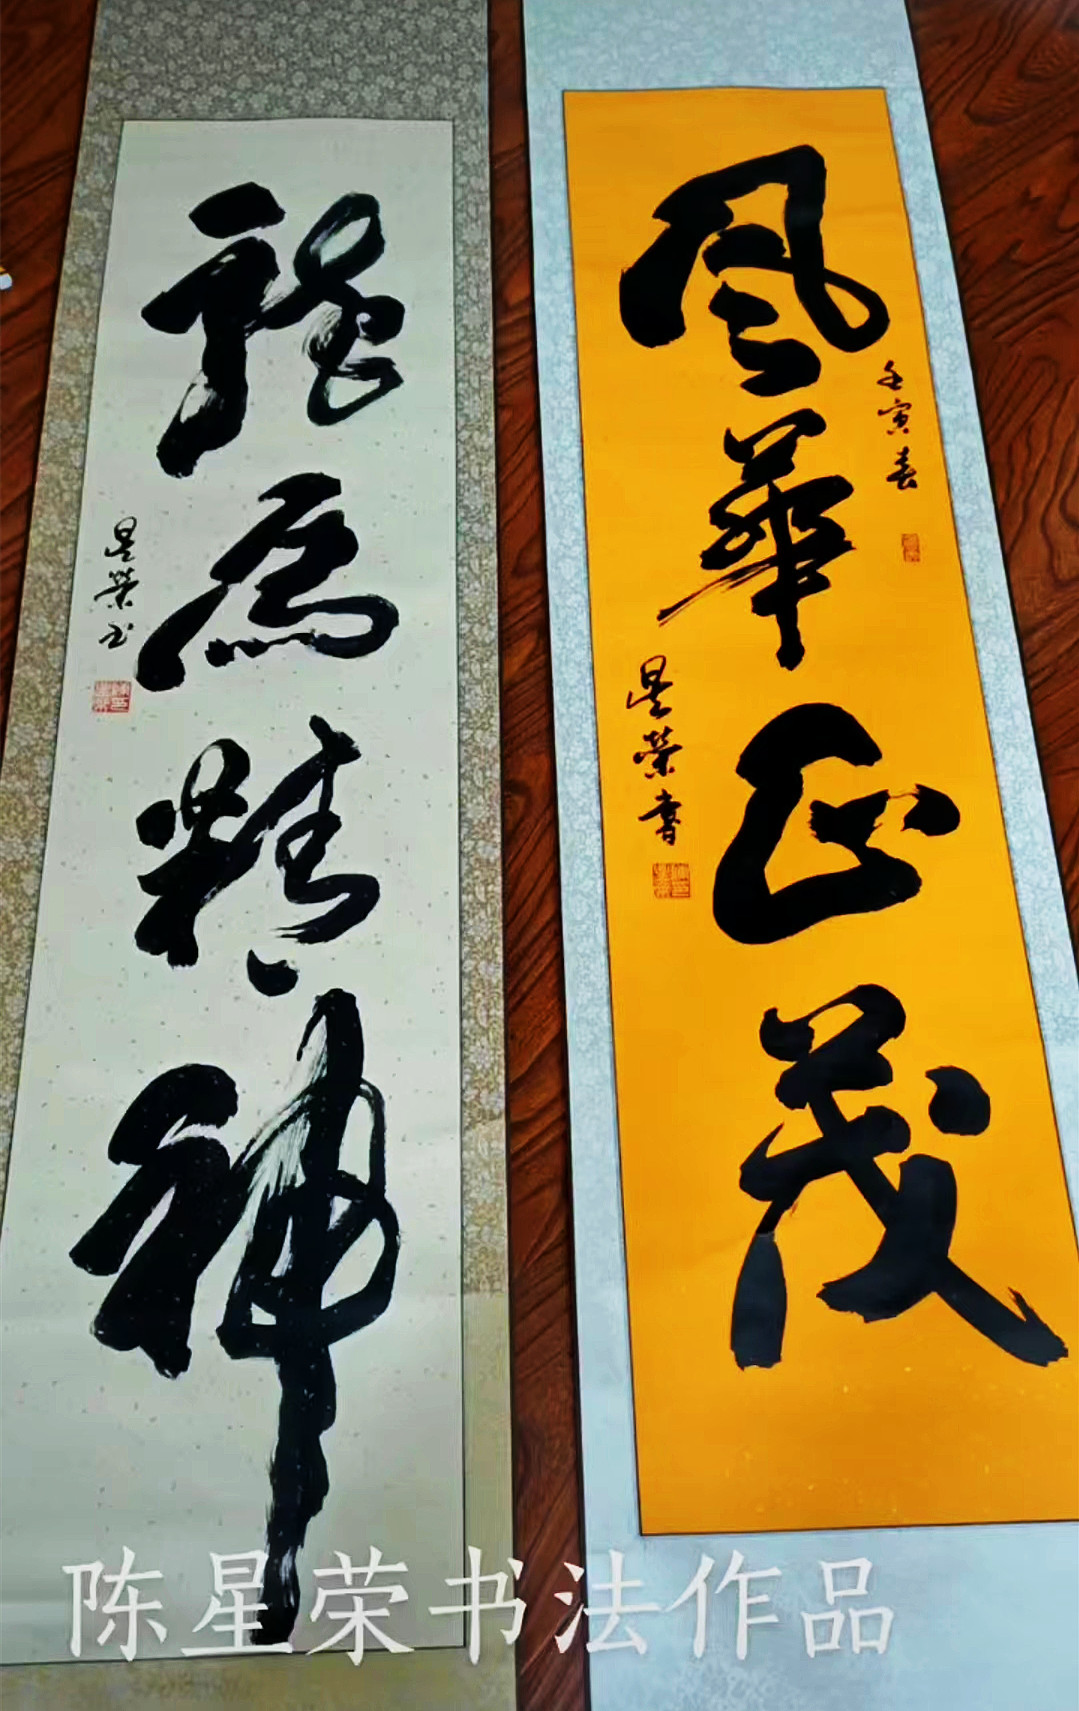 風華正茂
壬寅春
星榮書
龍馬精神
星榮书
陈星荣书法作品